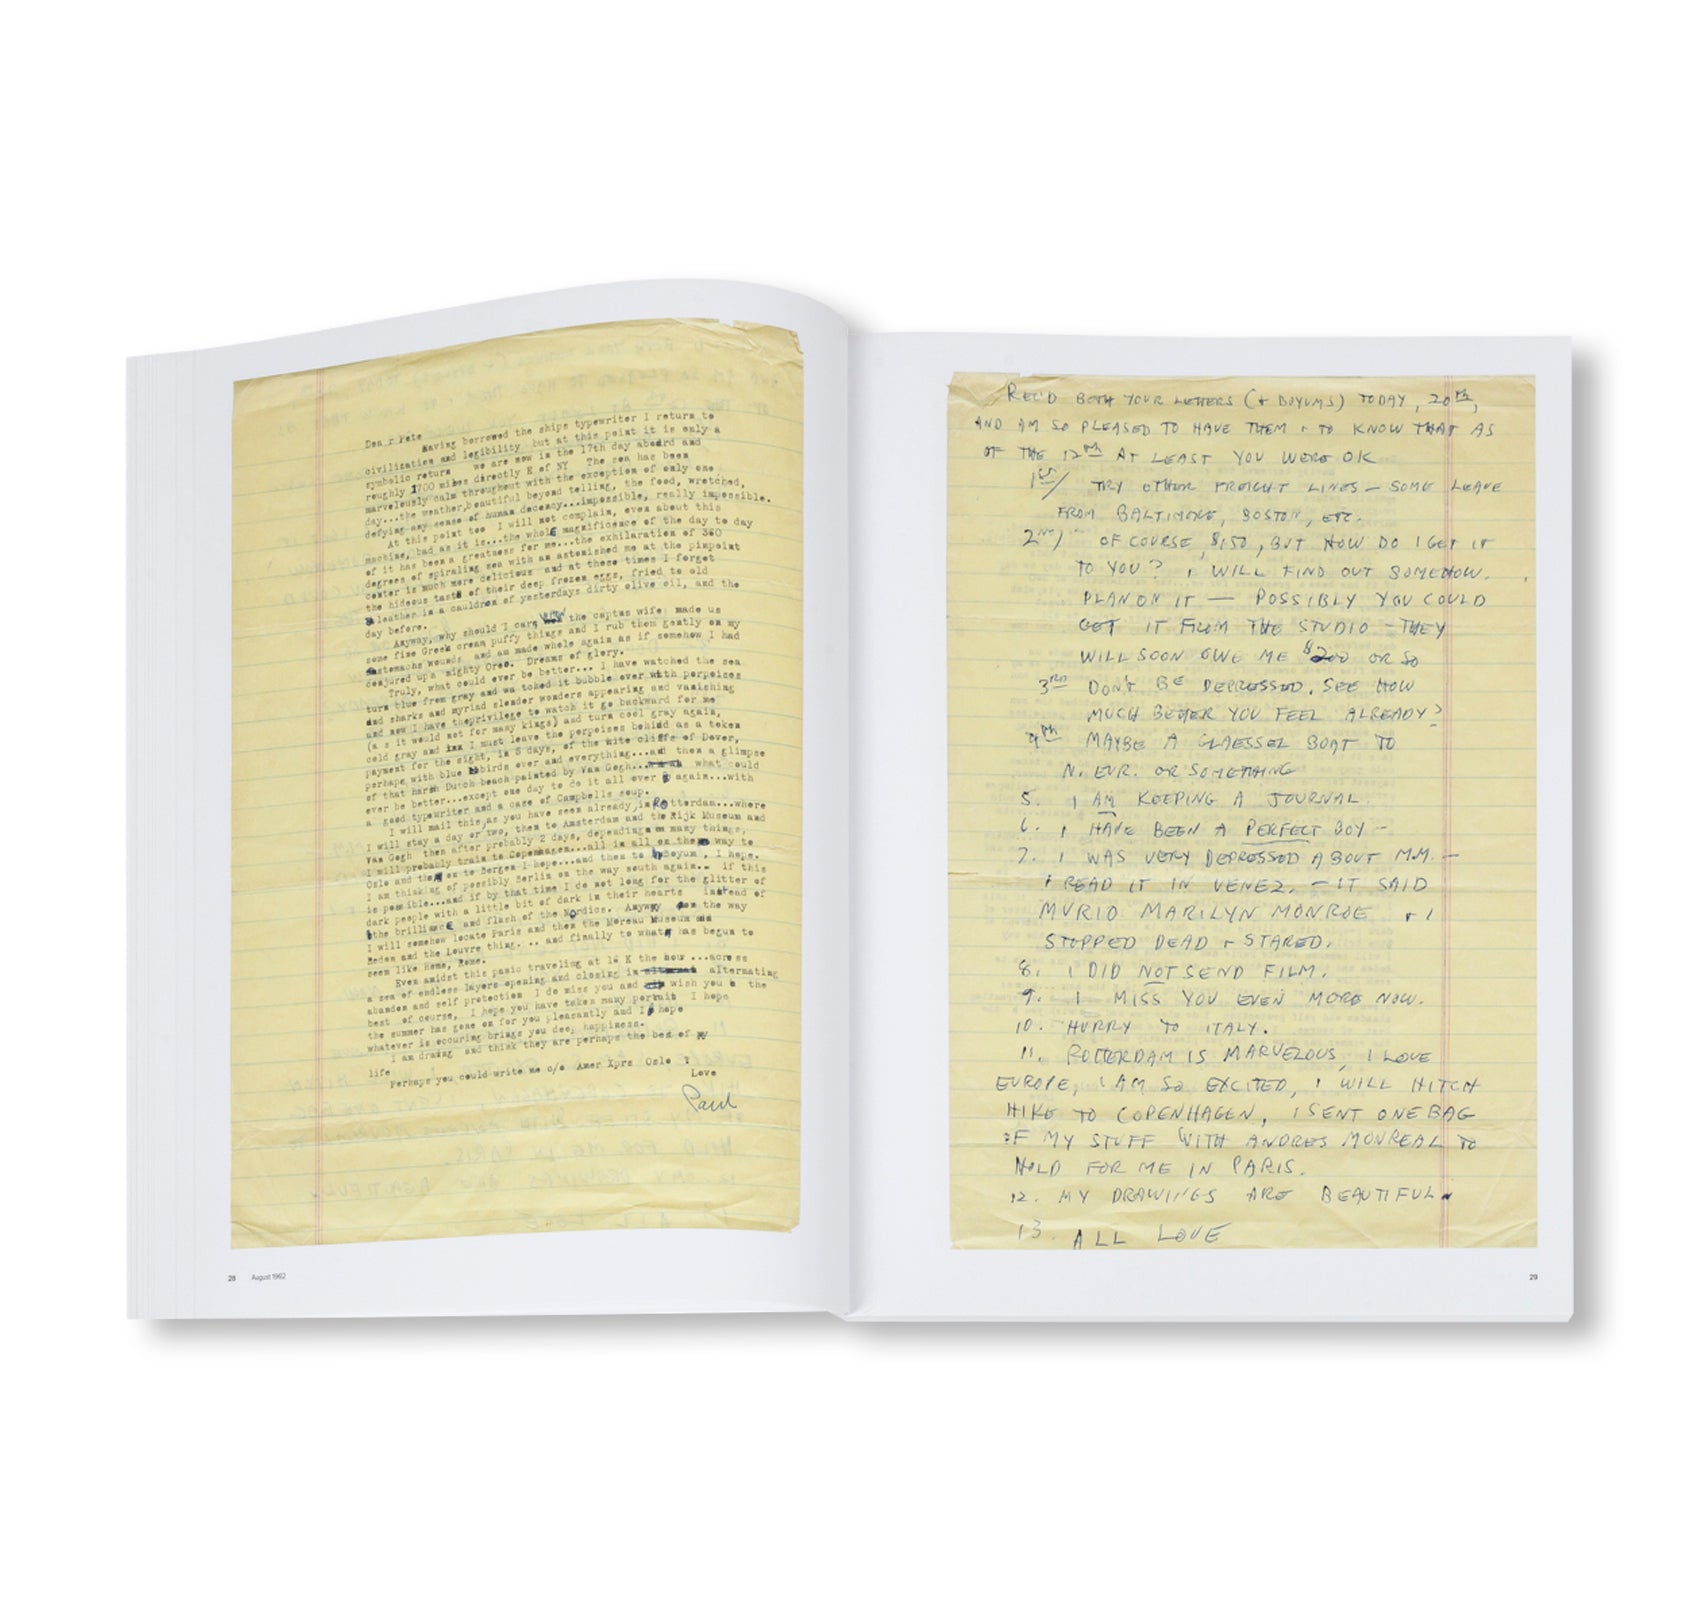 Dear Pete
Having borrowed the ships typewriter I return to
civilization and legibility but at this point it is only a
symbolic return we are now in the 17th day aboard and
roughly 1700 miles directly E of NY The sea has been
marvelously calm throughout with the exception of only one
day...the weather,beautiful beyond telling, the food, wretched,
defying any sense of human decency...impossible, really impossible.
At this point too I will not complain, even about this
machine, bad as it is...the whole magnificence of the day to day
of it has been a greatness for me...the exhilaration of 360
degrees of spiraling sea with an astonished me at the pinpoint
center is much more delicious and at these times I forget
the hideous taste of their deep frozen eggs, fried to old
leather in a cauldron of yesterdays dirty olive oil, and the
day before.
Anyway, why should I care now the captns wife made us
some fine Greek cream puffy things and I rub them gently on my
stomachs wounds and am made whole again as if somehow I had
conjured up a mighty Oreo. Dreams of glory.
Truly, what could ever be better... I have watched the sea
turn blue from gray and wa tched it bubble over with porpoises
and sharks and myriad slender wonders appearing and vanishing
and now I have theprivilege to watch it go backward for me
(a s it would not for many kings) and turn cool gray again,
cold gray and I must leave the porpoises behind as a token
payment for the sight, in 3 days, of the wite cliffs of Dover,
perhaps with blue birds over and everything...and then a glimpse
of that harsh Dutch beach painted by Van Gogh... what could
ever be better...except one day to do it all over again...with
a good typewriter and a case of Campbells soup.
I will mail this,as you have seen already,in Rotterdam...where
I will stay a day or two, then to Amsterdam and the Rijk Museum and
Van Gogh then after probably 2 days, depending on many things,
I will probably train to Copenhagen...all in all on the way to
Oslo and then on to Bergen I hope...and then to Boyum, I hope.
I am thinking of possibly Berlin on the way south again.. if this
is possible...and if by that time I do not long for the glitter of
dark people with a little bit of dark in their hearts instead of
the brilliance and flash of the Nordics. Anyway on the way
I will somehow locate Paris and then the Moreau Museum and
Redon and the Louvre thing. .. and finally to what has begun to
seem like home, Rome.
Even amidst this panic traveling at 16 K the hour ...across
a sea of endless layers opening and closing in alternating
abandon and self protection I do miss you and wish you the
best of course, I hope you have taken many portrait I hope
the summer has gone on for you pleasantly and I hope
whatever is occuring brings you deep happiness.
I am drwing and think they are perhaps the best of my
life
Perhaps you could write me c/o Amer Xprs Oslo ?
Love
Paul
28 August 1962
REC'D BOTH YOUR LETTERS (+ BOYUMS) TODAY, 20TH,
AND AM SO PLEASED TO HAVE THEM + TO KNOW THAT AS
OF THE 12TH AT LEAST YOU WERE OK
1ST/ TRY OTHER FREIGHT LINES – SOME LEAVE
FROM BALTIMORE, BOSTON, ETC.
2ND) OF COURSE $150, BUT HOW DO I GET IT
TO YOU? I WILL FIND OUT SOMEHOW.
PLAN ON IT — POSSIBLY YOU COULD
GET IT FROM THE STUDIO – THEY
WILL SOON OWE ME $200 OR SO
3RD DON'T BE DEPRESSED. SEE HOW
MUCH BETTER YOU FEEL ALREADY?
4TH MAYBE A GLAESSEL BOAT TO
N. EUR. OR SOMETHING
5. I AM KEEPING A JOURNAL.
6. I HAVE BEEN A PERFECT BOY –
7. I WAS VERY DEPRESSED ABOUT M.M. –
I READ IT IN VENEZ. – IT SAID
MURIO MARILYN MONROE + I
STOPPED DEAD + STARED.
8. I DID NOT SEND FILM.
9. I MISS YOU EVEN MORE NOW.
10. HURRY TO ITALY.
11. ROTTERDAM IS MARVELOUS, I LOVE
EUROPE, I AM SO EXCITED, I WILL HITCH
HIKE TO COPENHAGEN, I SENT ONE BAG
OF MY STUFF WITH ANDRES MONREAL TO
HOLD FOR ME IN PARIS.
12. MY DRAWINGS ARE BEAUTIFUL
13. ALL LOVE
29